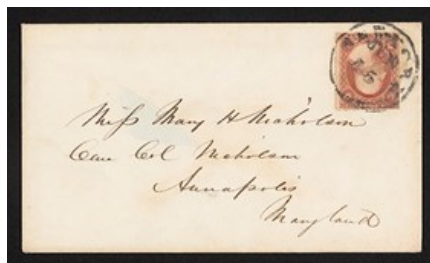 NEW YORK
JUN
15
Miss Mary H Nicholson
Care Col Nicholson
Annapolis
Maryland